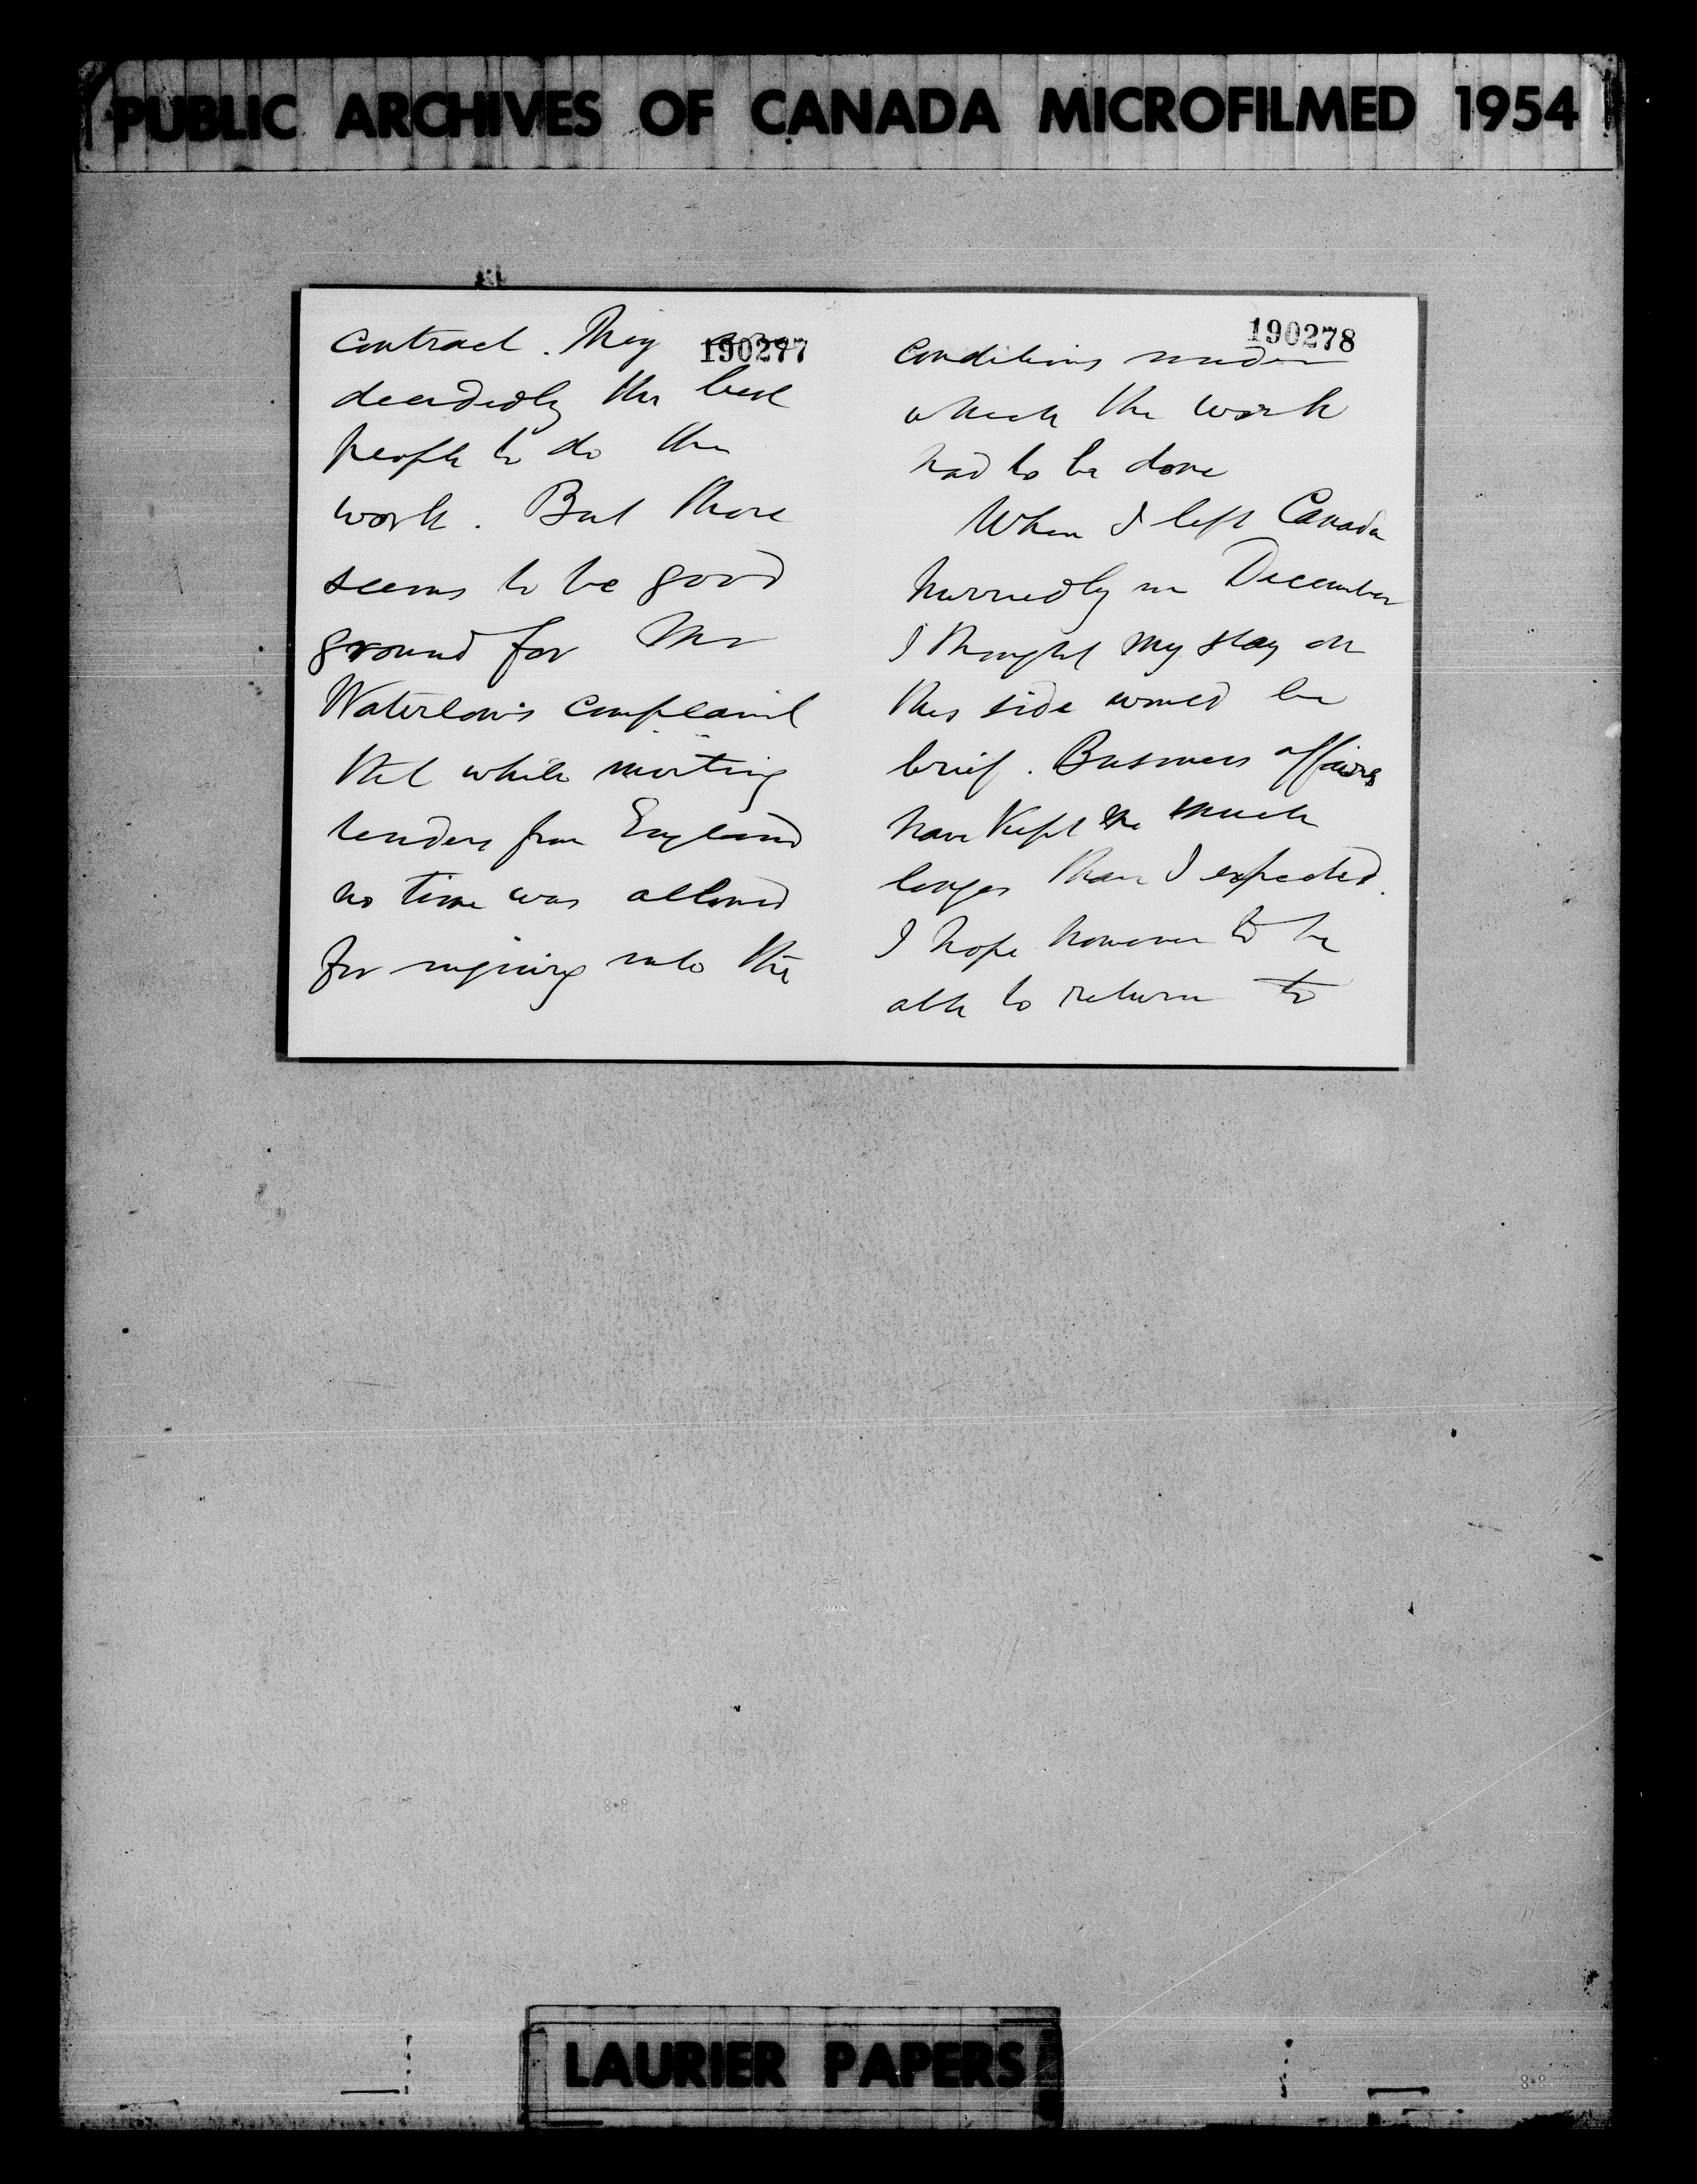 PUBLIC ARCHIVES OF CANADA MICROFILMED 1954
190277
contract. They are
decidedly the best
people to do the
work. But there
seems to be good
ground for Mr
Waterlow's complaint
that while inviting
tenders from England
no time was allowed
for inquiring into the
190278
conditions under
which the work
had to be done
When I left Canada
hurriedly in December
I thought my stay on
this side would be
brief. Business affairs
have kept me much
longer than I expected.
I hope however to be
able to return to
LAURIER PAPERS